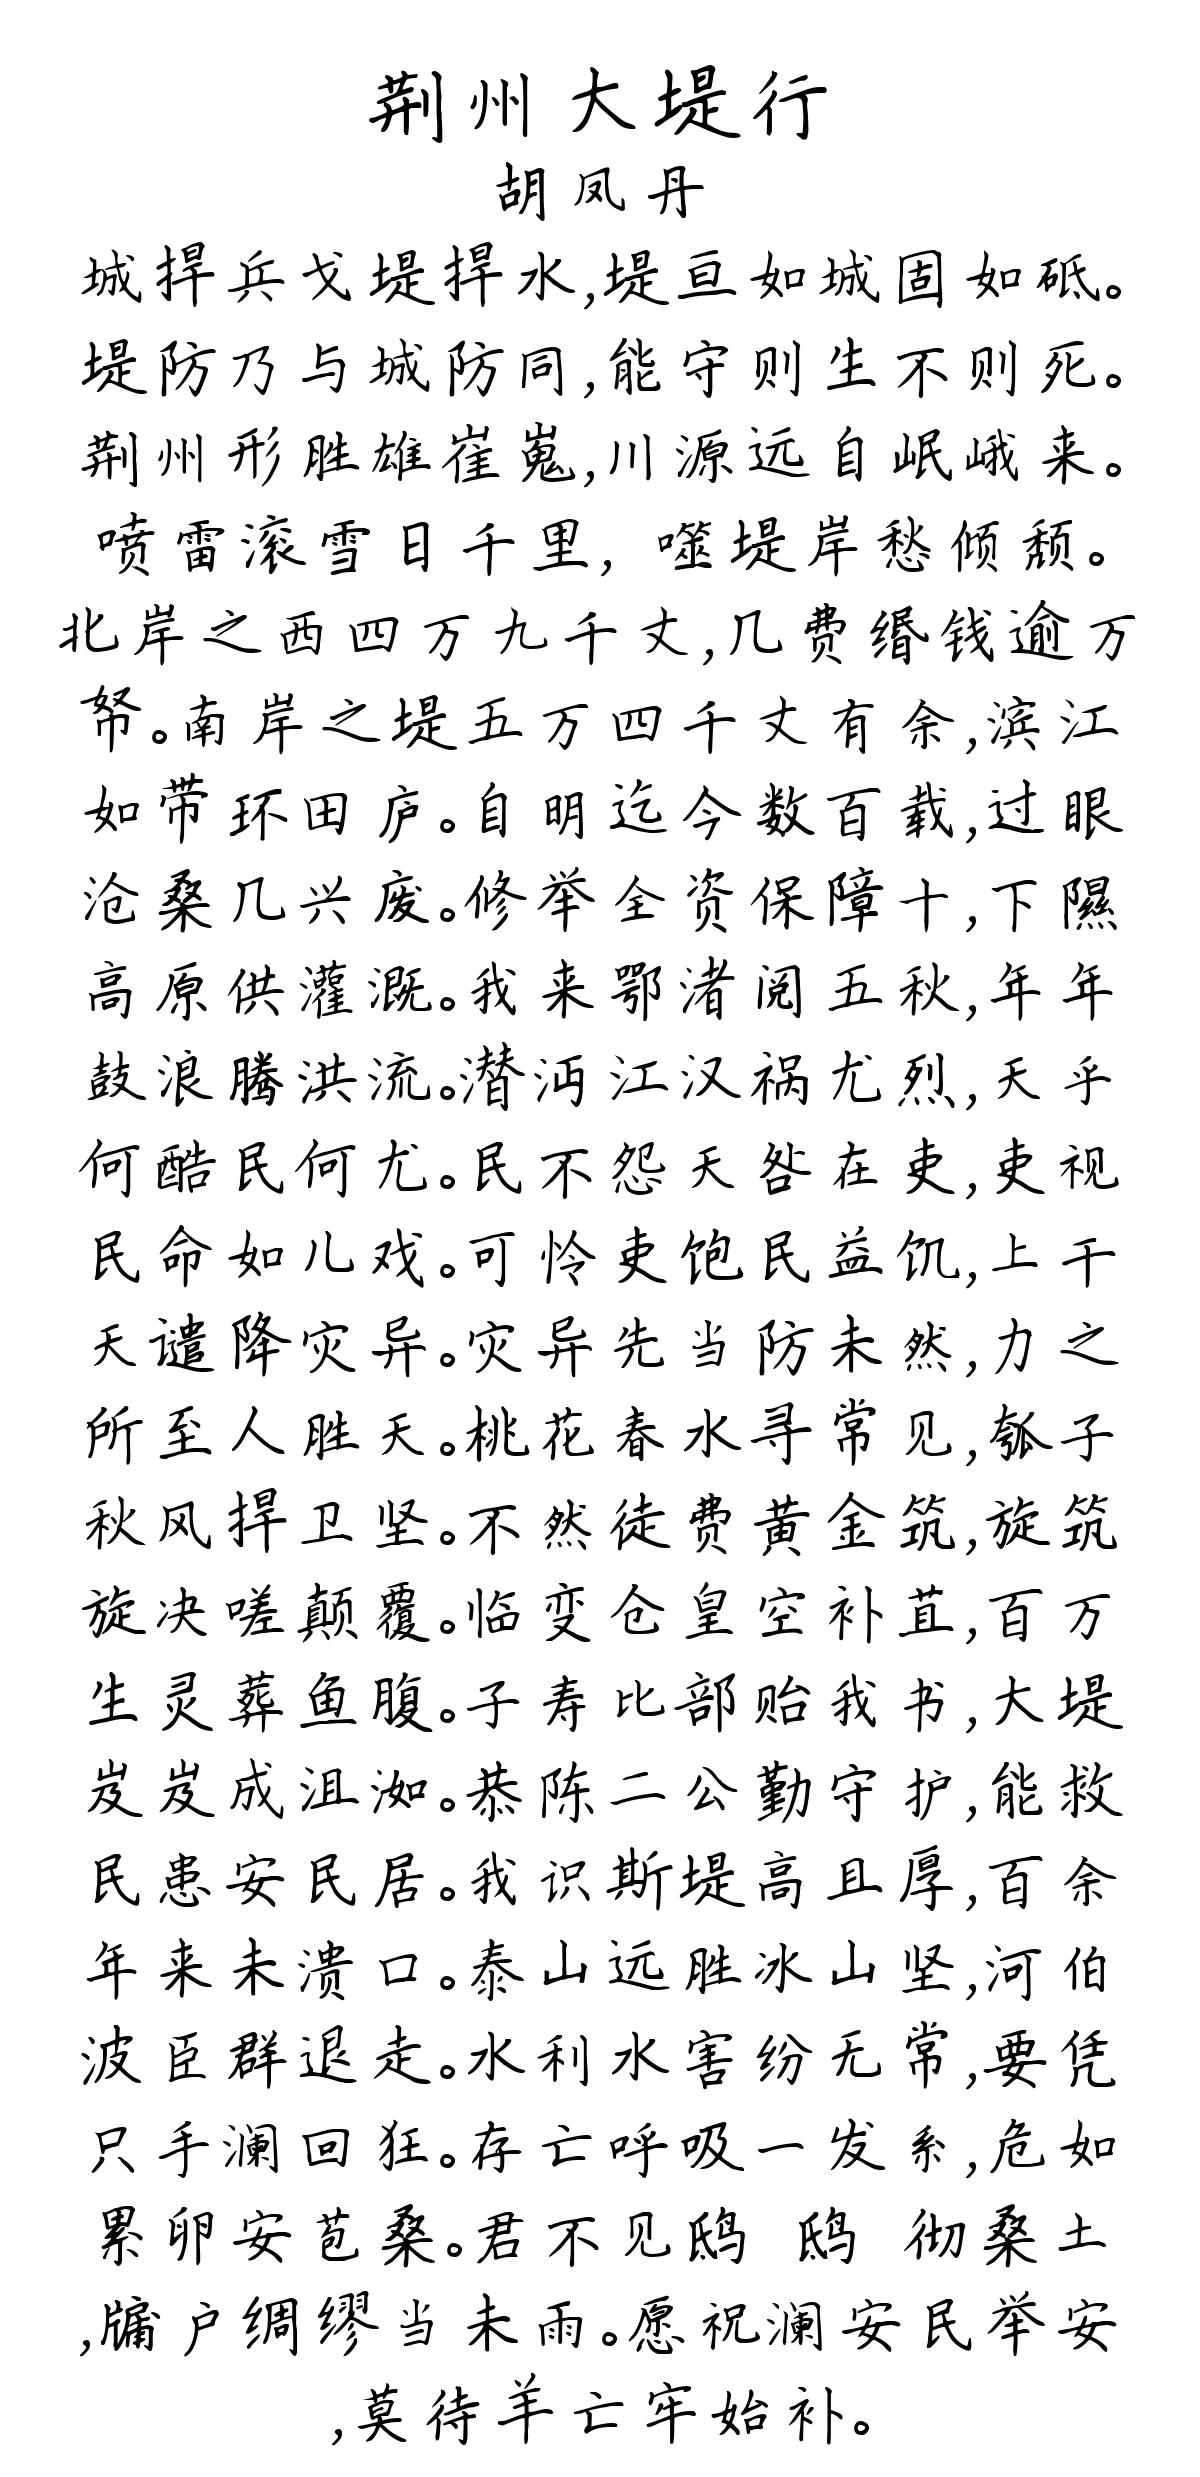 荆州大堤行
胡凤丹
城捍兵戈堤捍水,堤亘如城固如砥。
堤防乃与城防同,能守则生不则死。
荆州形胜雄崔嵬,川源远自岷峨来。
喷雷滚雪日千里,噬堤岸愁倾颓。
北岸之西四万九千丈,几费缗钱逾万
帑。南岸之堤五万四千丈有余,滨江
如带环田庐。自明迄今数百载,过眼
沧桑几兴废。修举全资保障十,下隰
高原供灌溉。我来鄂渚阅五秋,年年
鼓浪腾洪流。潜沔江汉祸尤烈,天乎
何酷民何尤。民不怨天咎在吏,吏视
民命如儿戏。可怜吏饱民益饥,上干
天谴降灾异。灾异先当防未然,力之
所至人胜天。桃花春水寻常见,瓠子
秋风捍卫坚。不然徒费黄金筑,旋筑
旋决嗟颠覆。临变仓皇空补苴,百万
生灵葬鱼腹。子寿比部贻我书,大堤
岌岌成沮洳。恭陈二公勤守护,能救
民患安民居。我识斯堤高且厚,百余
年来未溃口。泰山远胜冰山坚,河伯
波臣群退走。水利水害纷无常,要凭
只手澜回狂。存亡呼吸一发系,危如
累卵安苞桑。君不见鸱 鸱 彻桑土
,牖户绸缪当未雨。愿祝澜安民举安
,莫待羊亡牢始补。